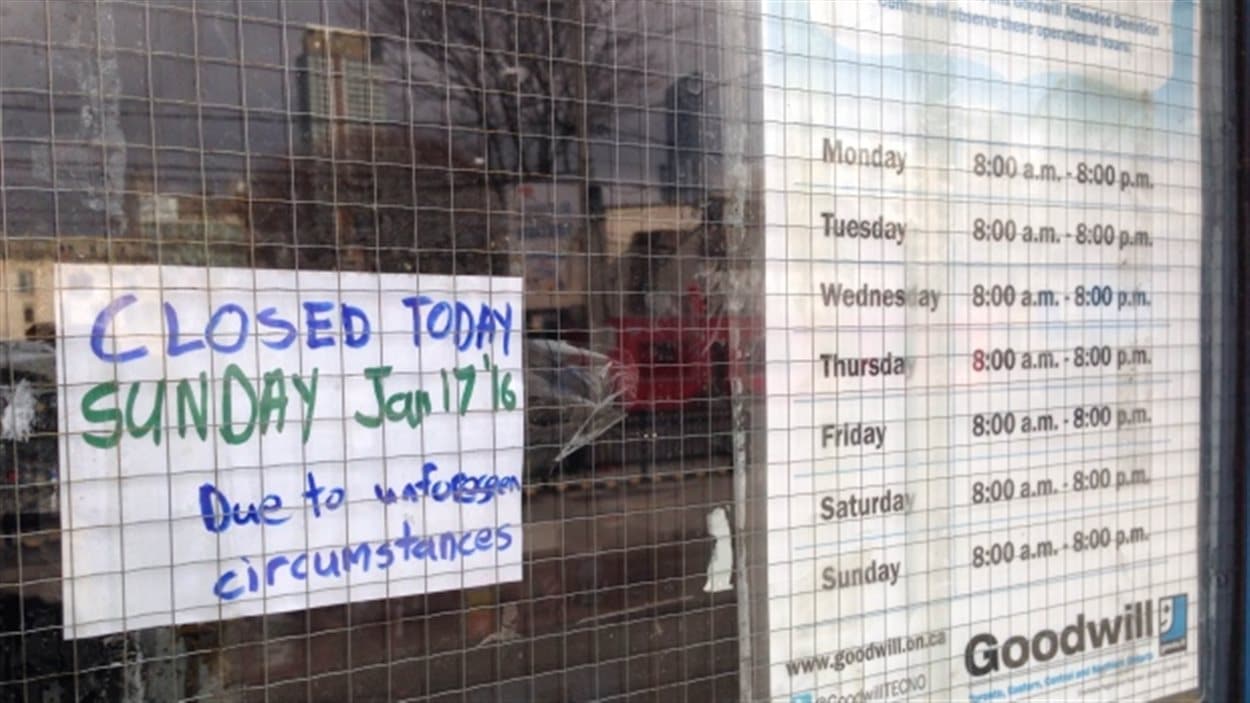 CLOSED TODAY
SUNDAY Jan 17 '16
Due to unforeseen
circumstances
Goodwill Attended Donation
Centre will observe these operational hours:
Monday 8:00 a.m. - 8:00 p.m.
Tuesday 8:00 a.m. - 8:00 p.m.
Wednesday 8:00 a.m. - 8:00 p.m.
Thursday 8:00 a.m. - 8:00 p.m.
Friday 8:00 a.m. - 8:00 p.m.
Saturday 8:00 a.m. - 8:00 p.m.
Sunday 8:00 a.m. - 8:00 p.m.
www.goodwill.on.ca
@GoodwillTECNO
Goodwill
Toronto, Eastern, Central and Northern Ontario